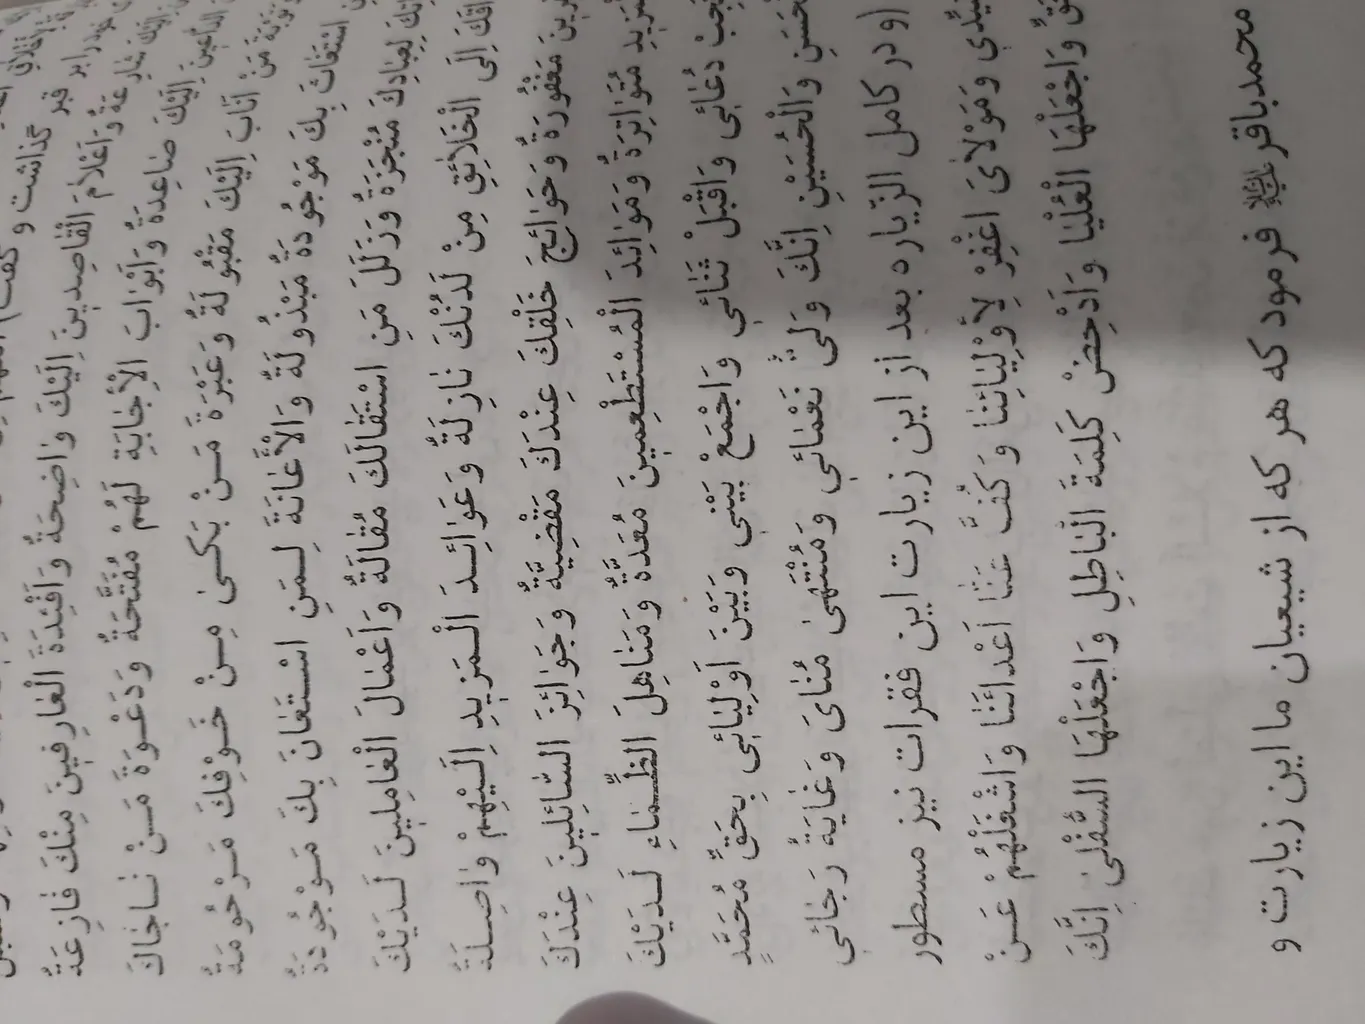 گذاشت و گفت
اِلَیْكَ وٰاضِحَةٌ وَاَفْئِدَةَ الْعٰارِفینَ مِنْكَ فٰازِعَةٌ
صٰاعِدَةٌ وَاَبْوٰابَ الْاِجٰابَةِ لَهُمْ مُفَتَّحَةٌ وَدَعْوَةَ مَنْ نٰاجٰاكَ
مَنْ اَنٰابَ اِلَیْكَ مَقْبُولَةٌ وَعَبْرَةَ مَنْ بَكىٰ مِنْ خَوْفِكَ مَرْحُومَةٌ
اسْتَغٰاثَ بِكَ مَوْجُودَةٌ مَبْذُولَةٌ وَالْاِعٰانَةَ لِمَنِ اسْتَعٰانَ بِكَ مَوْجُودَةٌ
لِعِبٰادِكَ مُنْجَزَةٌ وَزَلَلَ مَنِ اسْتَقٰالَكَ مُقٰالَةٌ وَاَعْمٰالَ الْعٰامِلینَ لَدَیْكَ
اِلَى الْخَلاٰئِقِ مِنْ لَدُنْكَ نٰازِلَةٌ وَعَوٰائِدَ الْمَزیدِ اِلَیْهِمْ وٰاصِلَةٌ
مَغْفُورَةٌ وَحَوٰائِجَ خَلْقِكَ عِنْدَكَ مَقْضِیَّةٌ وَجَوٰائِزَ السّٰائِلینَ عِنْدَكَ
مُتَوٰاتِرَةٌ وَمَوٰائِدَ الْمُسْتَطْعِمینَ مُعَدَّةٌ وَمَنٰاهِلَ الظِّمٰاءِ لَدَیْكَ
دُعٰائى وَاقْبَلْ ثَنٰائى وَاجْمَعْ بَیْنى وَبَیْنَ اَوْلِیٰائى بِحَقِّ مُحَمَّدٍ
وَالْحُسَیْنِ اِنَّكَ وَلِىُّ نَعْمٰائى وَمُنْتَهىٰ مُنٰاىَ وَغٰایَةُ رَجٰائى
و در کامل الزّیاره بعد از این زیارت این فقرات نیز مسطور
وَمَوْلاٰىَ اغْفِرْ لِاَوْلِیٰائِنٰا وَكُفَّ عَنّٰا اَعْدٰائَنٰا وَاشْغَلْهُمْ عَنْ
وَاجْعَلْهَا الْعُلْیٰا وَاَدْحِضْ كَلِمَةَ الْبٰاطِلِ وَاجْعَلْهَا السُّفْلىٰ اِنَّكَ
محمدباقر علیه‌السلام فرمود که هر که از شیعیان ما این زیارت و